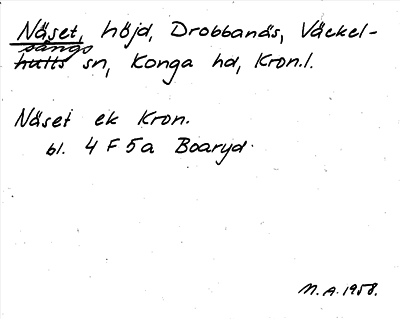 Näset, höjd, Drobbanäs, Väckel-
sångs
hults sn, Konga hd, Kron.l.
Näset ek Kron.
bl. 4 F 5a Boaryd.
M.A. 1958.